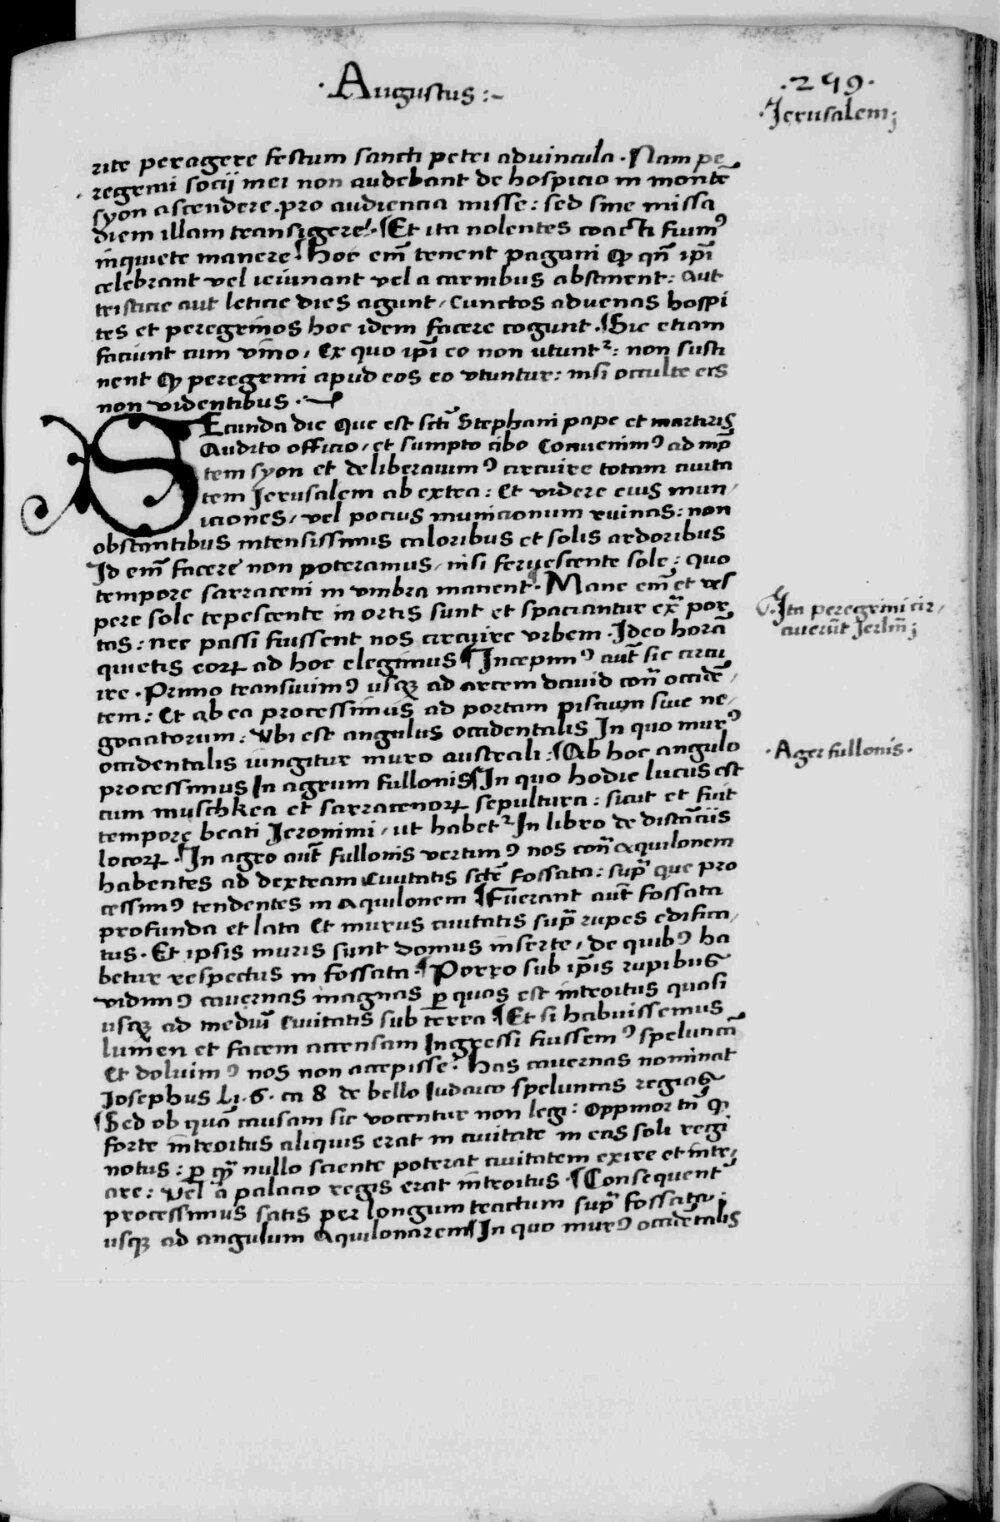 · Augustus :~
· 259 ·
· Jerusalem ;
rite peragere festum sancti petri aduincula · Nam pe
regrini socij mei non audebant de hospicio in montē
syon ascendere · pro audiencia misse : sed sine missa
diem illam transigere · ¶ Et ita nolentes coacti fuimꝰ
inquiete manere ¶ Hoc em̄ tenent pagani ꝙ qn̄ ip̄i
celebrant vel ieiunant vel a carnibus abstinent : aut
tristicie aut leticie dies agunt / Cunctos aduenas hospi
tes et peregrinos hoc idem facere cogunt · ¶ Sic etiam
faciunt cum vino / Ex quo ip̄i eo non utunt᷑ : non susti
nent ꝙ peregrini apud eos eo vtuntur : nisi occulte eis
non videntibus ·
SEcunda die Que est scti Stephani pape et martiris
Audito officio / et sumpto cibo Conuenimꝰ ad mō
tem syon et deliberauimꝰ circuire totam ciuita
tem Jerusalem ab extra : Et videre eius mun /
iciones / vel pocius municionum ruinas : non
obstantibus intensissimis caloribus et solis ardoribus
Id em̄ facere non poteramus / nisi feruescente sole : quo
tempore sarraceni in vmbra manent · Mane em̄ et ves
pere sole tepescente in ortis sunt et spaciantur ex̄ por
tas : nec passi fuissent nos circuire vrbem · Ideo horā
quietis eoꝝ ad hoc elegimus ¶ Incepimꝰ aūt sic circu
ire · Primo transiuimꝰ usqꝫ ad arcem dauid con̄ occidē /
tem : Et ab ea processimus ad portam piscium siue ne /
gociatorum : Vbi est angulus occidentalis In quo murꝰ
occidentalis iungitur muro australi : ¶ Ab hoc angulo
processimus In agrum fullonis ¶ In quo hodie lucus est
cum muschkea et sarracenoꝝ sepultura : sicut et fuit
tempore beati Jeronimi / ut habet᷑ In libro de distanciis
locoꝝ · ¶ In agro aūt fullonis vertimꝰ nos con̄ aquilonem
habentes ad dexteram Ciuitatis scte fossata : sup̄ que pro
cessimꝰ tendentes in aquilonem ¶ Fuerant aūt fossata
profunda et lata Et murus ciuitatis sup̄ rupes edifica /
tus · Et ipsis muris sunt domus inserte / de quibꝰ ha
betur respectus in fossata · ¶ Porro sub ip̄is rupibus
vidimꝰ cauernas magnas ꝑ quas est introitus quasi
usqꝫ ad mediū Ciuitatis sub terra ¶ Et si habuissemus
lumen et facem accensam Ingressi fuissemꝰ speluncā
Et doluimꝰ nos non accepisse · Has cauernas nominat
Josephus Li · 6 · ca 8 de bello Iudaico speluncas regias
¶ Sed ob quā causam sic vocentur non legi : Oppinor tn̄ ꝙ
forte introitus aliquis erat in ciuitate in eas soli regi
notus : ꝑ quē nullo sciente poterat ciuitatem exire et intr /
are : Vel a palacio regis erat introitus · ¶ Consequent̄
processimus satis per longum tractum sup̄ fossata :
usqꝫ ad angulum Aquilonarem ¶ In quo murꝰ occidētalis
Ita peregrini cir /
cuierūt Jerlm̄ ;
· Ager fullonis ·